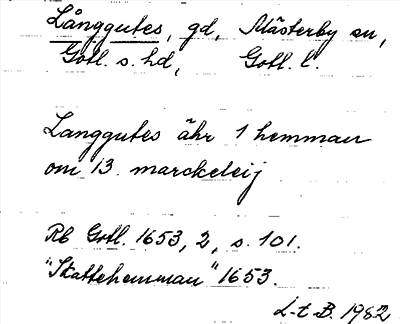 Långgutes, gd, Mästerby sn,
Gotl. s. hd, Gotl. l.
Langgutes ähr 1 hemman
om 13 marckeleij
Rb Gotl. 1653, 2, s. 101.
"Skattehemman" 1653.
L-t-B. 1982